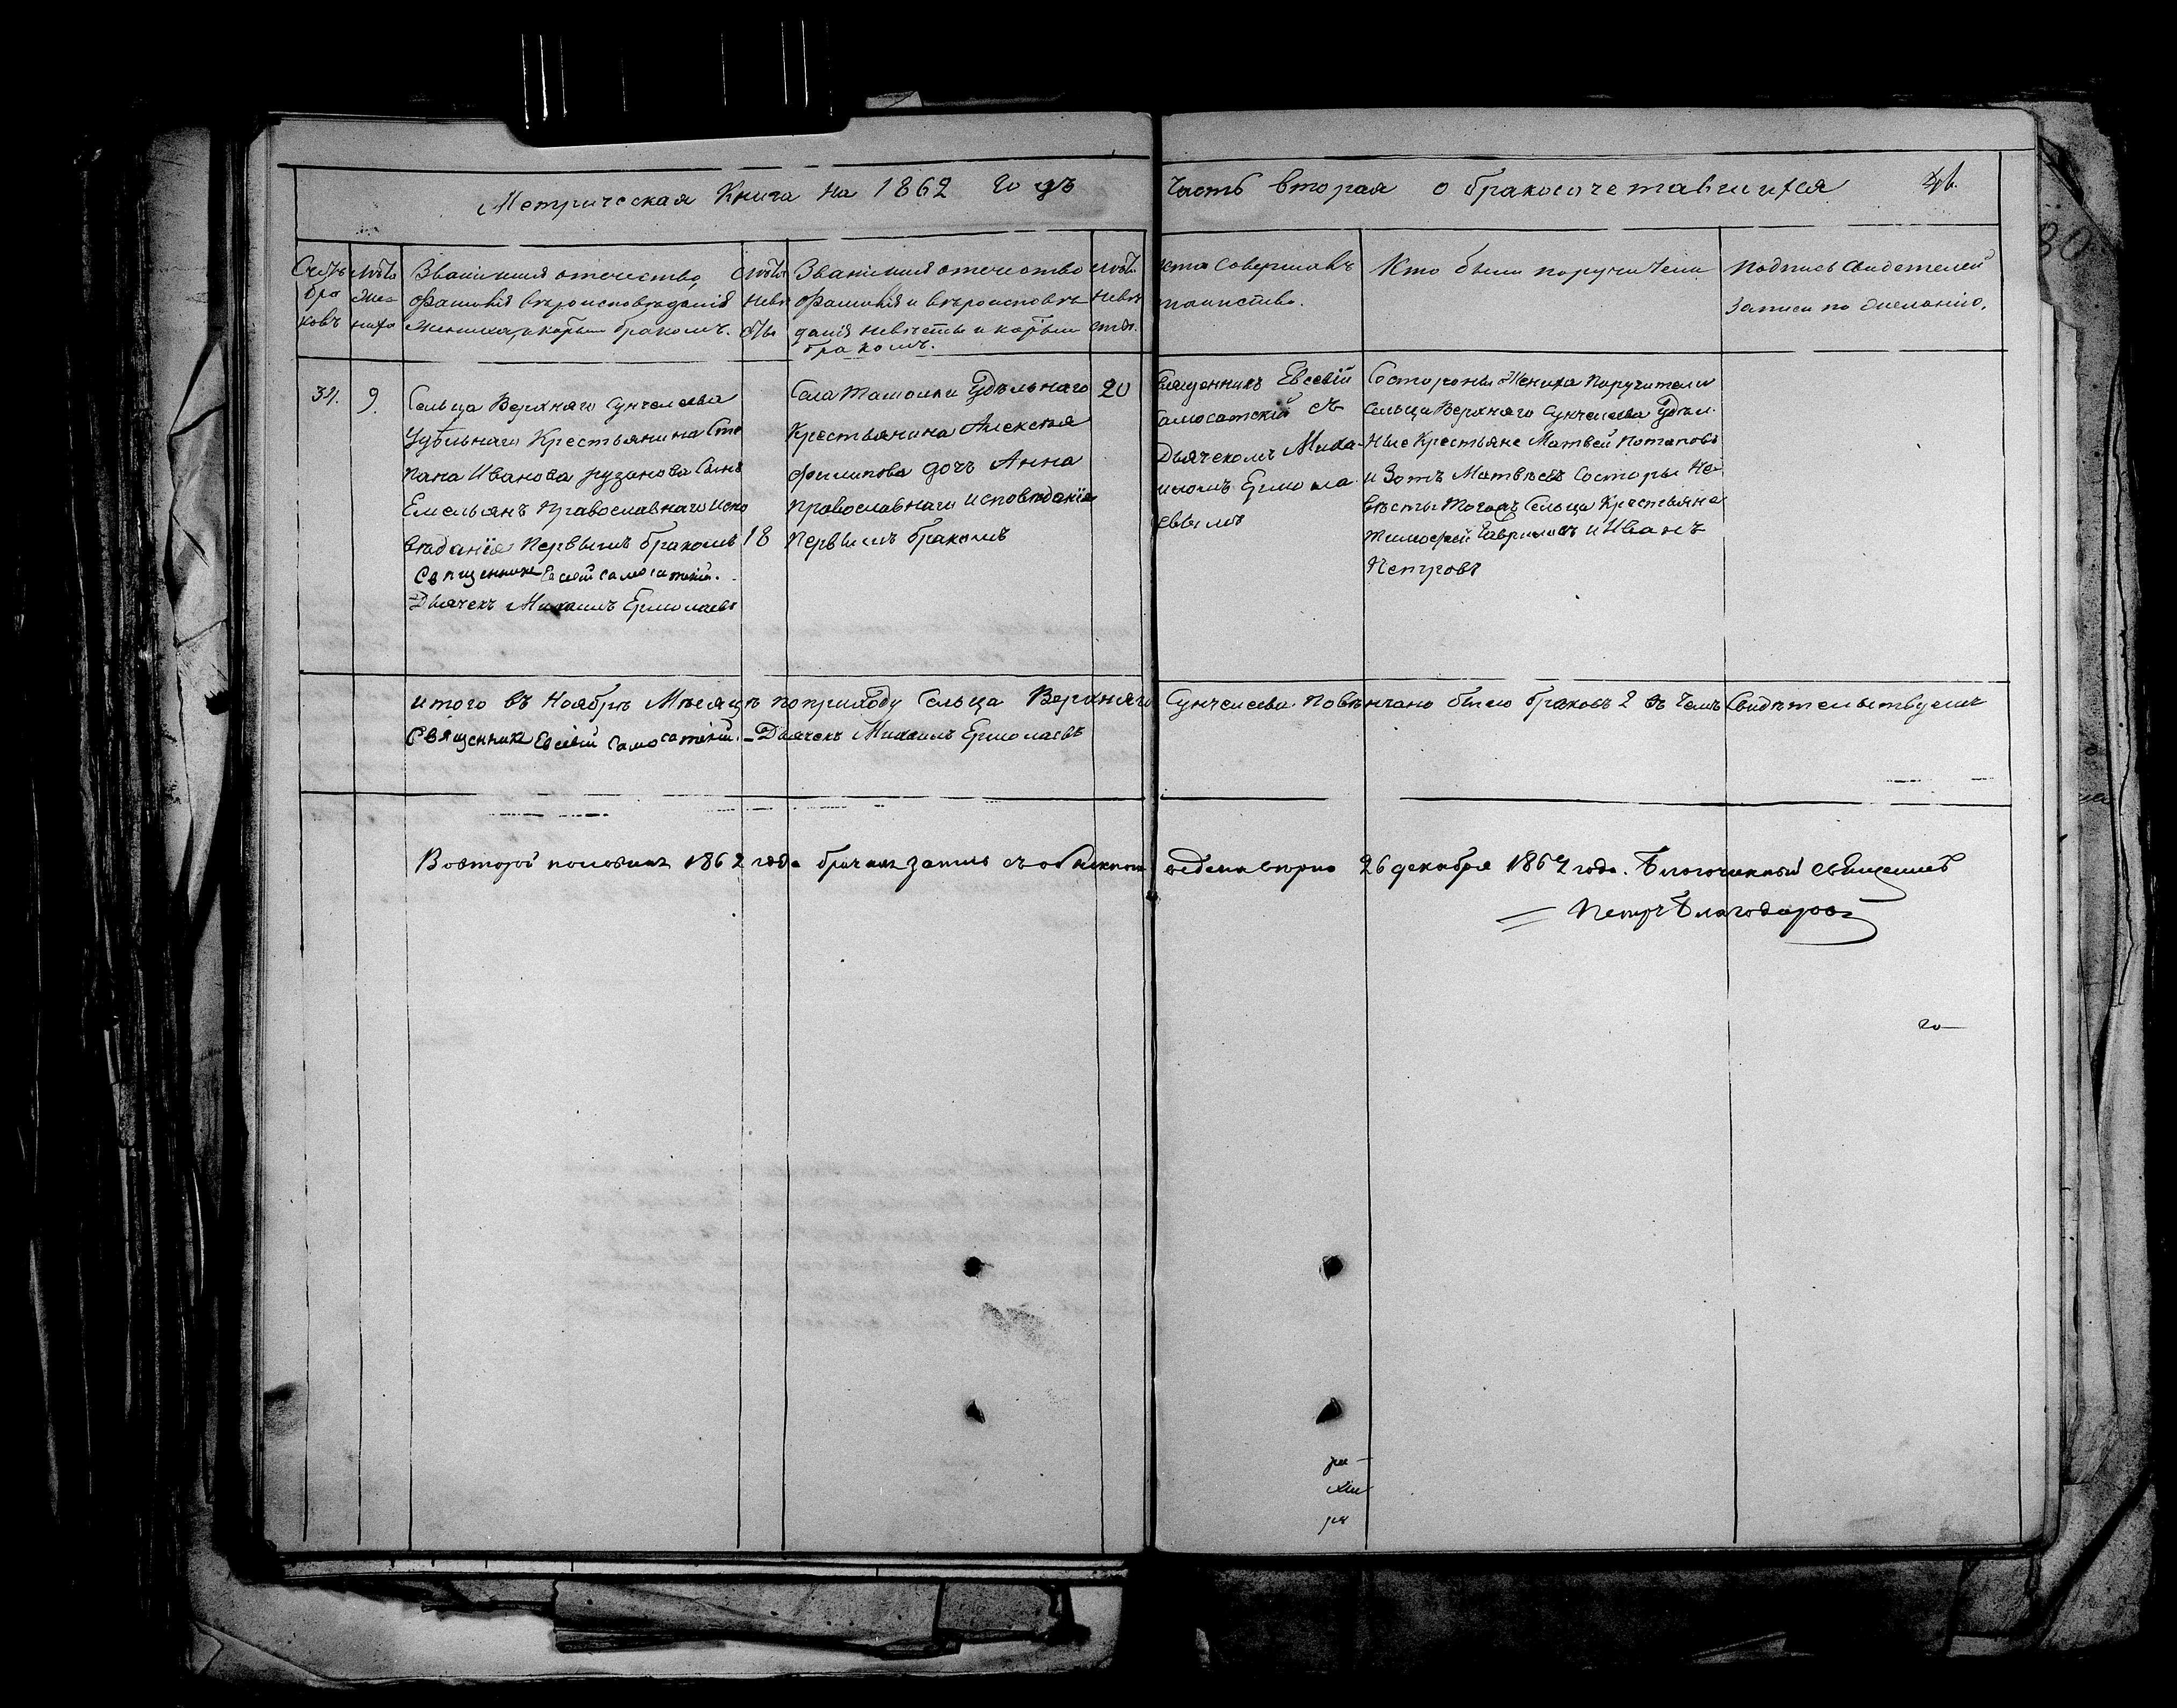 Метрическая Книга на 1862 годъ
Часть вторая о бракосочетавшихся
Счетъ бра ковъ
Лѣта жениха
Званіе имя отечество, фамилія вѣроисповѣданія жениха, и которымъ бракомъ.
Лѣта
Званіе имя отечество
фамилія и вѣроисповѣ
данія невѣсты и которымъ
бракомъ.
Лѣта невѣ сты.
Кто совершалъ
таинство.
Кто были поручители
Подпись свидетелей
записи по желанію.
34.
9.
Сельца Верхняго Сунчелеева
Удѣльнаго Крестьянина Сте
пана Иванова Рузанова Сынъ
Емельянъ Православнаго испо
вѣданія Первымъ бракомъ
18
Священникъ Евсевій Самосатскій.
Дьячекъ Михаилъ Ермолаевъ
Села Ташолки Удѣльнаго
Крестьянина Алексея
Филипова дочь Анна
Православнаго исповѣданія
Первымъ бракомъ
20
Священникъ Евсевій
Самосатскій съ
Дьячекомъ Миха
иломъ Ермола
евымъ
Состороны Жениха Поручители
Сельца Верхняго Сунчелеева Удѣл
ные Крестьяне Матвей Потаповъ
и Зотъ Матвѣевъ Состоры Не
вѣсты Тогожъ Сельца Крестьяне
Тимофей Гавриловъ и Иванъ
Петровъ
итого въ Ноябрѣ Мѣсяцѣ поприходу Сельца Верхняго Сунчелеева Повѣнчано было браковъ 2 въ чемъ Свидѣтельствуемъ
Священникъ Евсевій Самосатскій. - Дьячекъ Михаилъ Ермолаевъ
Вовторой половинѣ 1862 года 26 декабря 1862 года. Благочинный Священникъ
Петръ Благодаров